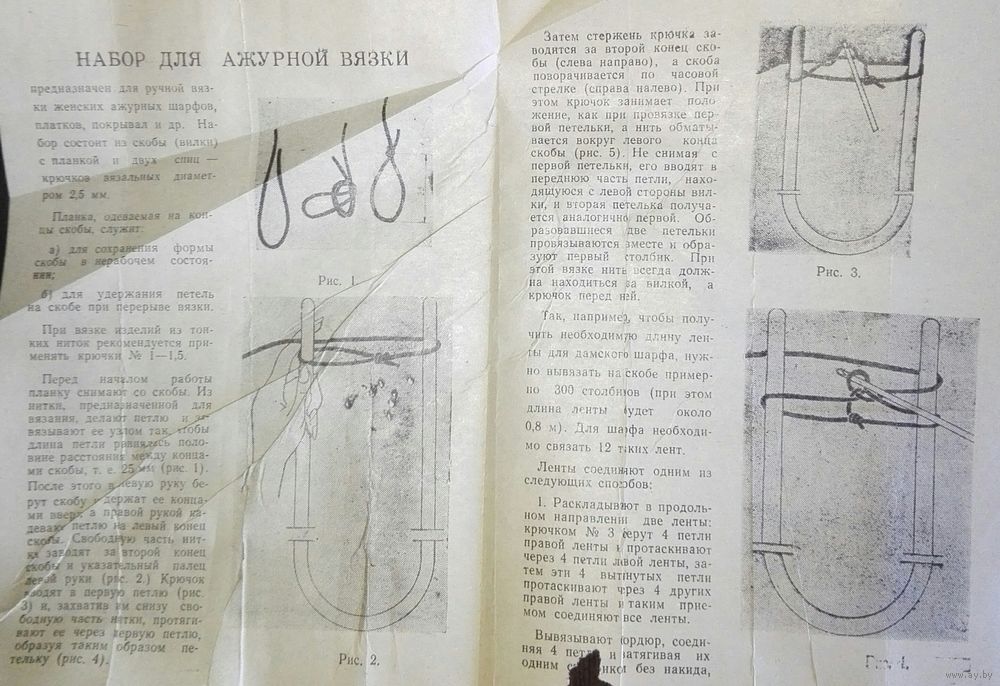 НАБОР ДЛЯ АЖУРНОЙ ВЯЗКИ
предназначен для ручной вяз-
ки женских ажурных шарфов,
платков, покрывал и др. На-
бор состоит из скобы (вилки)
с планкой и двух спиц —
крючков вязальных диамет-
ром 2,5 мм.
Планка, одеваемая на кон-
цы скобы, служит:
а) для сохранения формы
скобы в нерабочем состоя-
нии;
б) для удержания петель
на скобе при перерыве вязки.
При вязке изделий из тон-
ких ниток рекомендуется при-
менять крючки № 1—1,5.
Перед началом работы
планку снимают со скобы. Из
нитки, предназначенной для
вязания, делают петлю и за-
вязывают ее узлом так, чтобы
длина петли равнялась поло-
вине расстояния между конца-
ми скобы, т. е. 25 мм (рис. 1).
После этого в левую руку бе-
рут скобу и держат ее конца-
ми вверх, а правой рукой на-
девают петлю на левый конец
скобы. Свободную часть нит-
ки заводят за второй конец
скобы и указательный палец
левой руки (рис. 2.) Крючок
вводят в первую петлю (рис.
3) и, захватив им снизу сво-
бодную часть нитки, протяги-
вают ее через первую петлю,
образуя таким образом пе-
тельку (рис. 4).
Рис. 1
Рис. 2.
Затем стержень крючка за-
водится за второй конец ско-
бы (слева направо), а скоба
поворачивается по часовой
стрелке (справа налево). При
этом крючок занимает поло
жение, как при провязке пер-
вой петельки, а нить обматы-
вается вокруг левого конца
скобы (рис. 5). Не снимая с
первой петельки, его вводят в
переднюю часть петли, нахо-
дящуюся с левой стороны вил-
ки, и вторая петелька получа-
ется аналогично первой. Об-
разовавшиеся две петельки
провязываются вместе и обра-
зуют первый столбик. При
этой вязке нить всегда долж-
на находиться за вилкой, а
крючок перед ней.
Так, например, чтобы полу-
чить необходимую длину лен-
ты для дамского шарфа, нуж-
но вывязать на скобе пример-
но 300 столбиков (при этом
длина ленты будет около
0,8 м). Для шарфа необходи-
мо связать 12 таких лент.
Ленты соединяют одним из
следующих способов:
1. Раскладывают в продоль-
ном направлении две ленты:
крючком № 3 берут 4 петли
правой ленты и протаскивают
через 4 петли левой ленты, за-
тем эти 4 вытянутых петли
протаскивают через 4 других
правой ленты и таким прие-
мом соединяют все ленты.
Вывязывают бордюр, соеди-
няя 4 петли и затягивая их
одним без накида,
Рис. 3.
www.ay.by